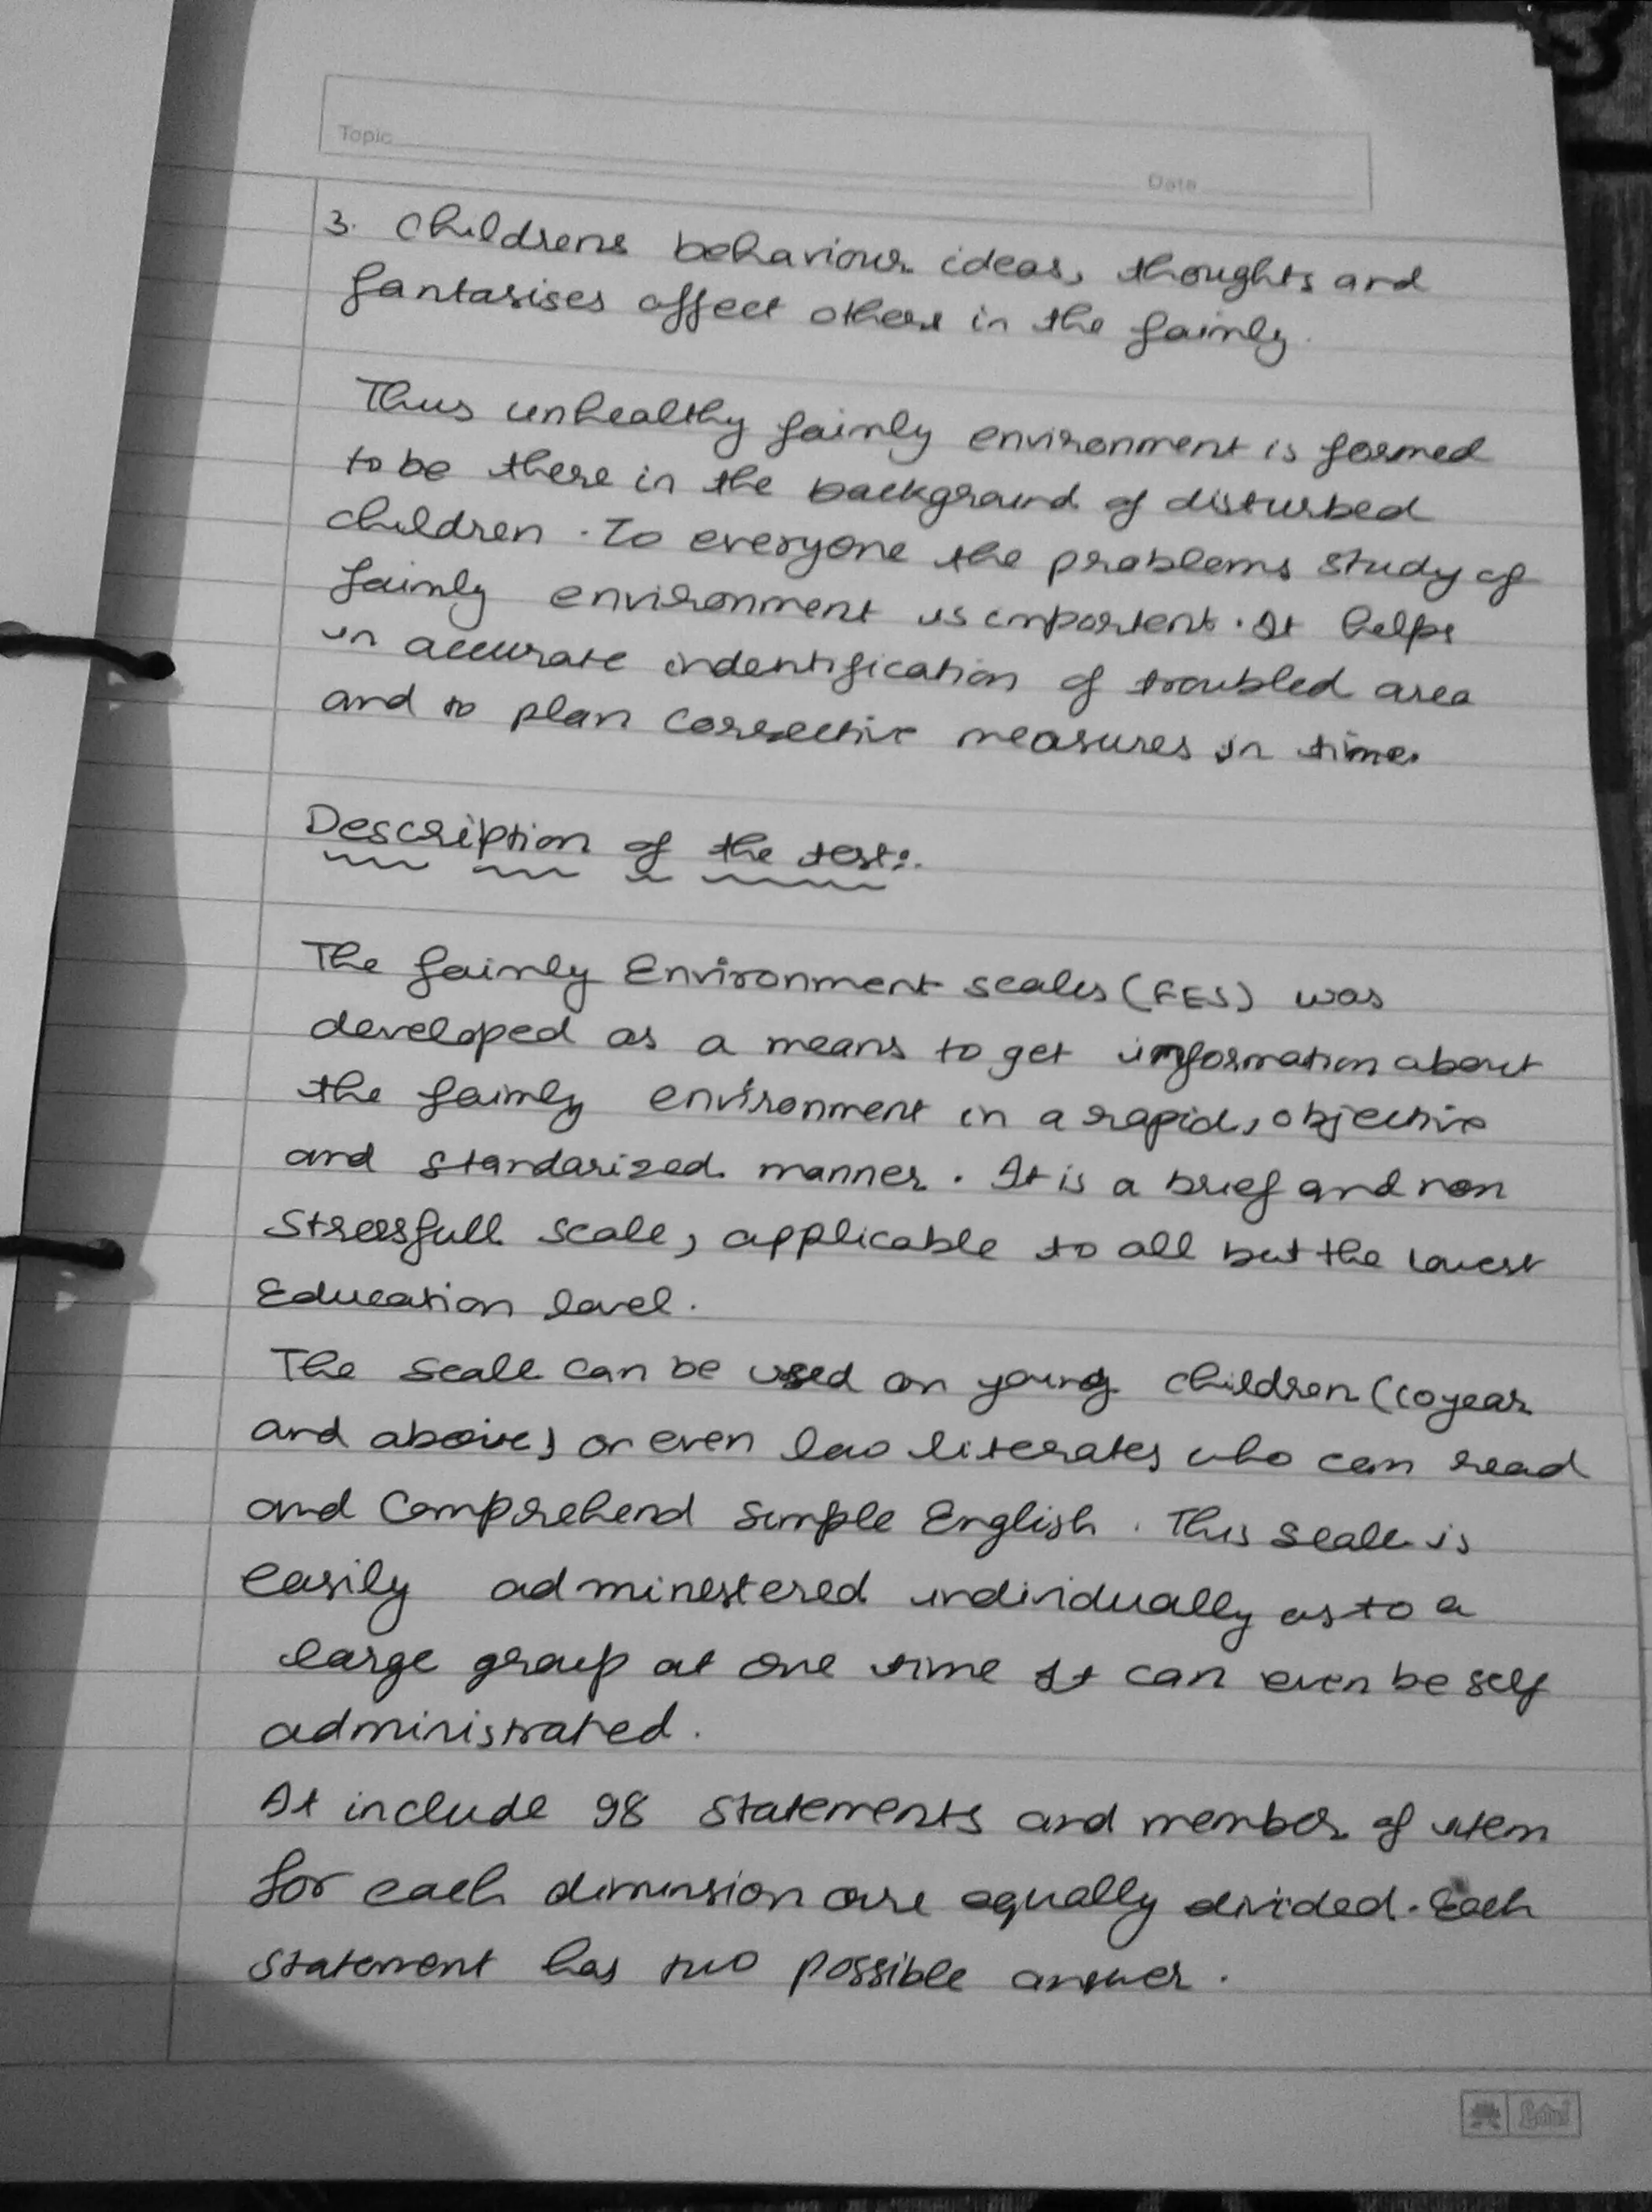 Topic
Date
3. Childrens behaviour ideas, thoughts and
fantasises affect others in the faimly.
Thus unhealthy faimly environment is formed
to be there in the background of disturbed
children. To everyone the problems study of
faimly environment is importent. It helps
in accurate indentification of troubled area
and to plan corrective measures in time.
Description of the test:.
The faimly Environment scales (FES) was
developed as a means to get information about
the faimly environment in a rapid, objective
and standarized manner. It is a brief and non
stressfull scale, applicable to all but the lowest
Education level.
The scale can be used on young children (10 year
and above) or even low literates who can read
and comprehend simple English. This scale is
easily administered individually as to a
large group at one time It can even be self
administrated.
It include 98 statements and member of item
for each dimension are equally divided. Each
statement has two possible answer.